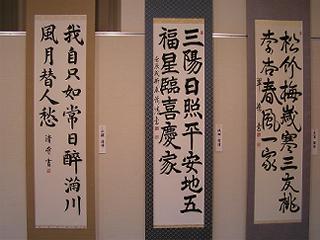 松竹梅歳寒三友桃
李杏春風一家
三陽日照平安地五
福星臨喜慶家
我自只如常日醉滿川
風月替人愁